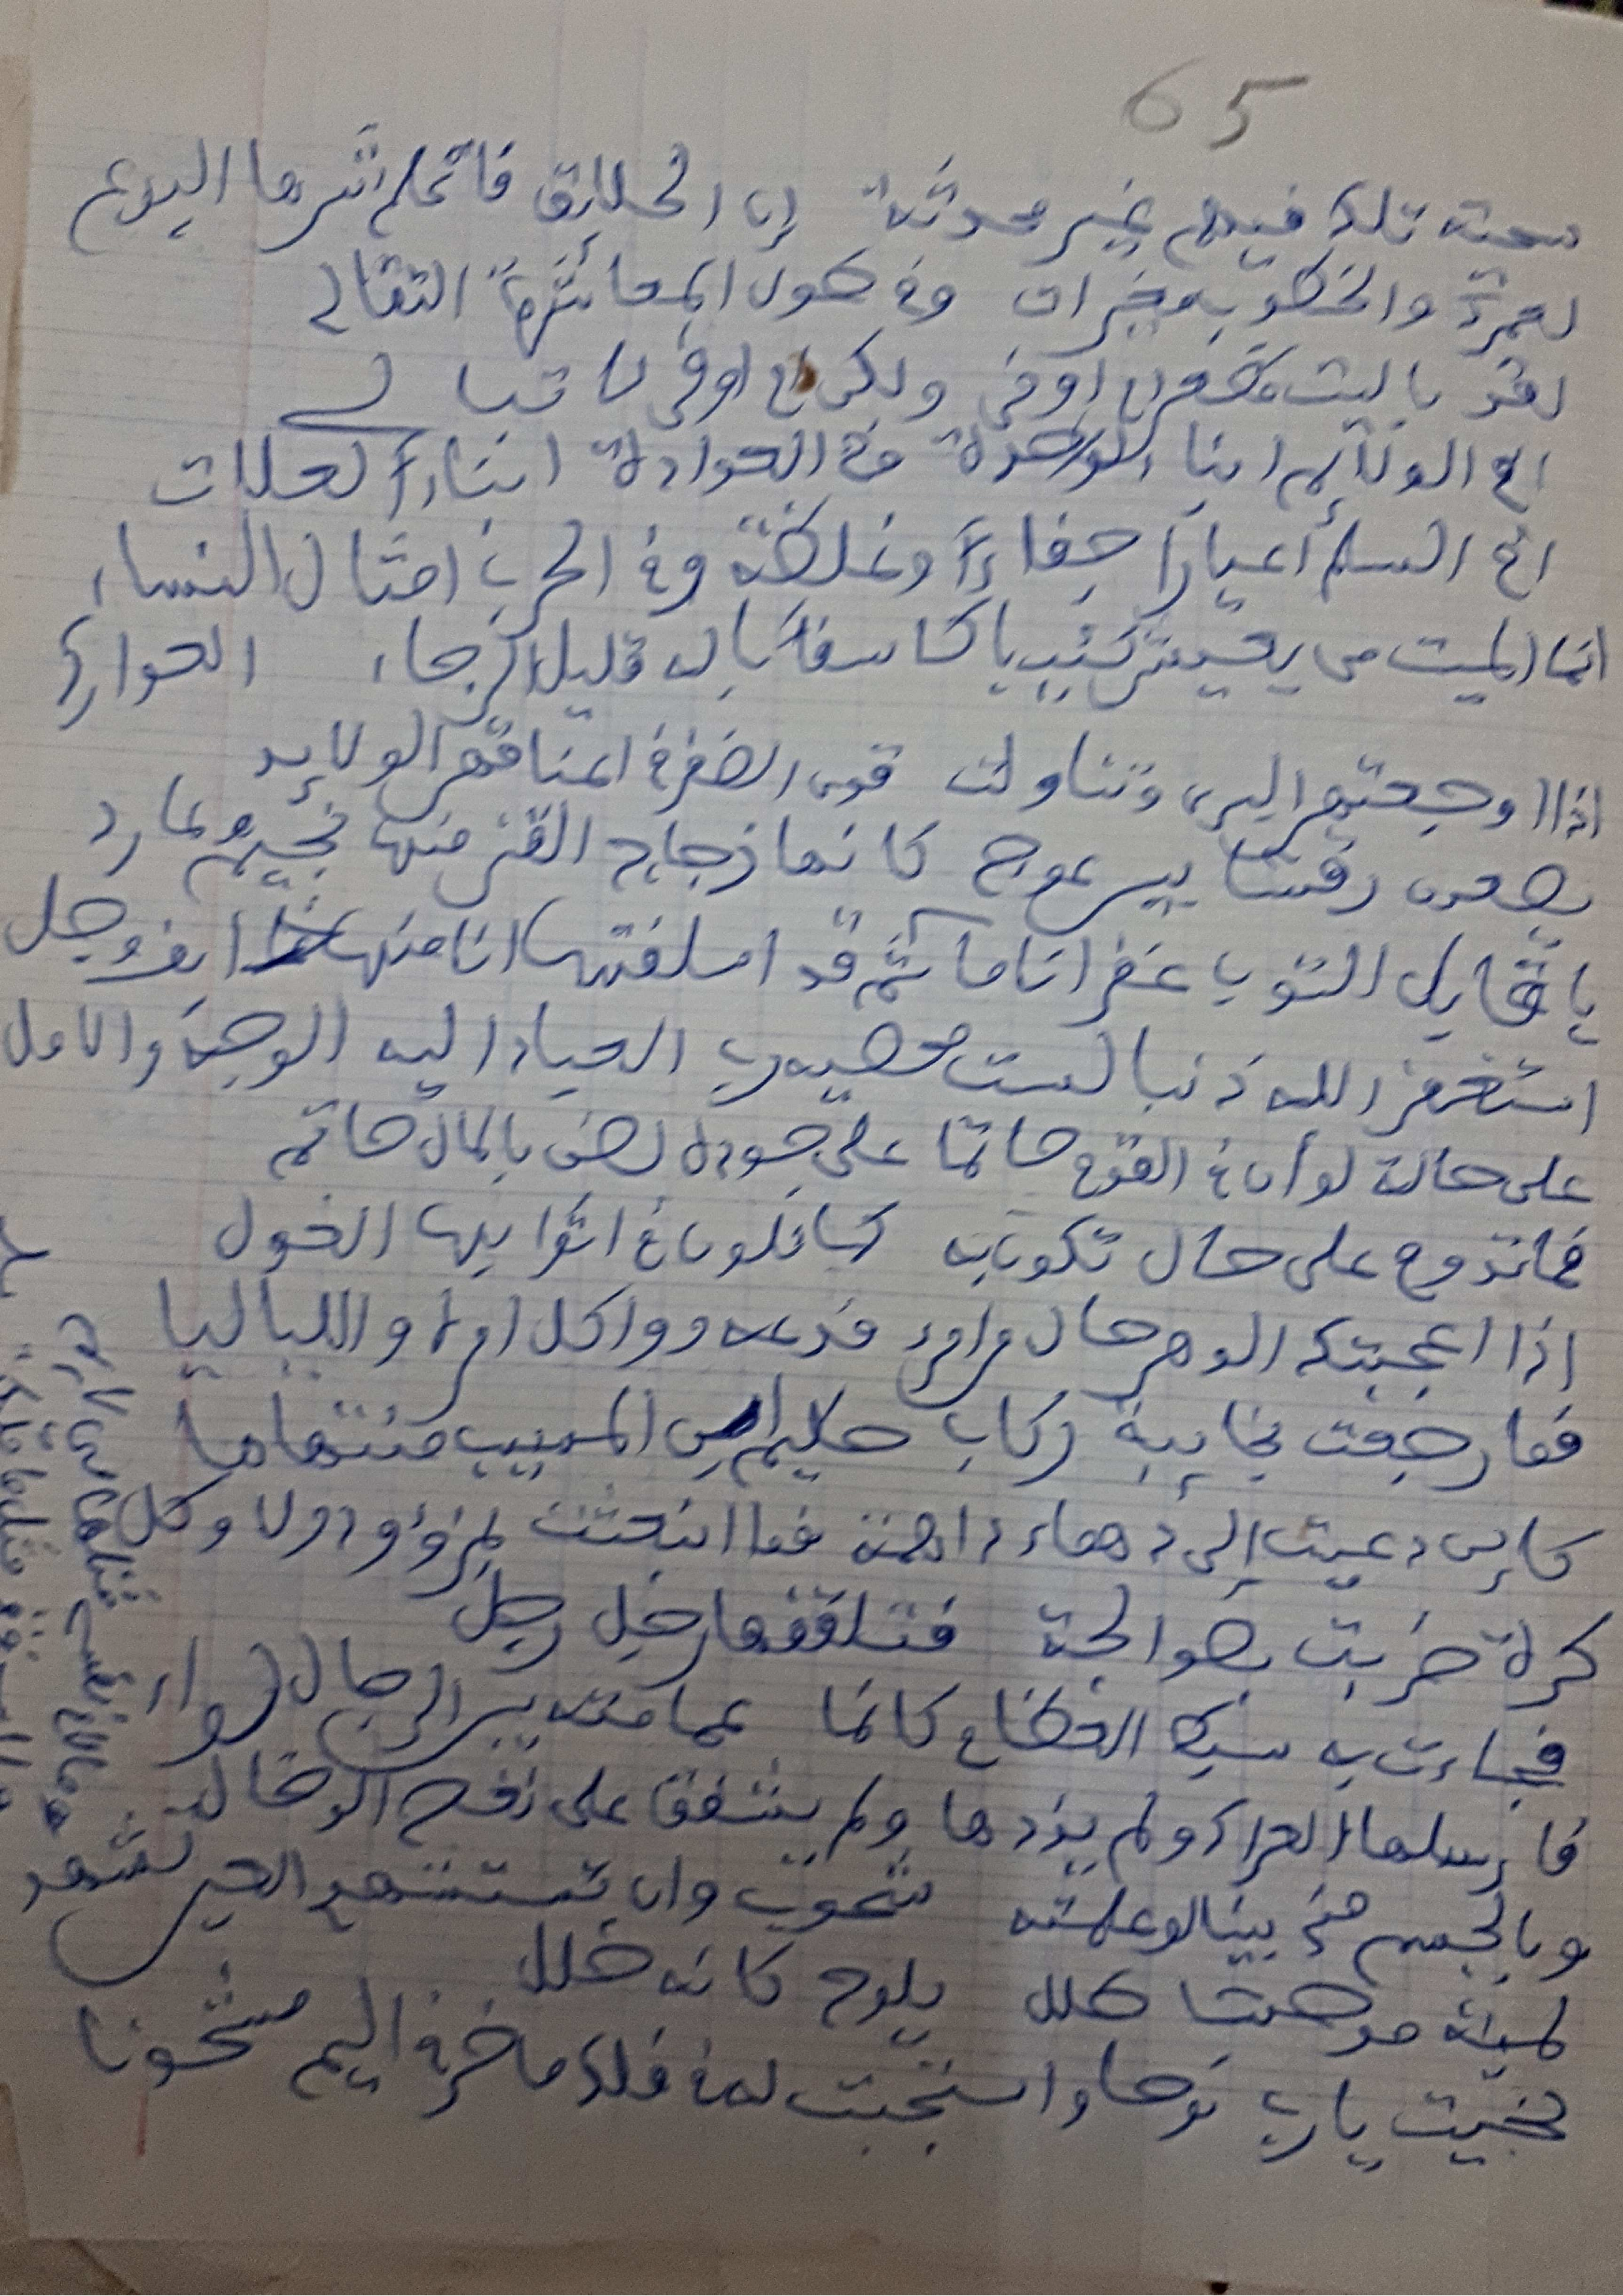 65
سجية تلك فيهم غير محدثة إن الخلايق فاعلم شرها البدع
لعمرك والخطوب مغيرات وفي طول المعاشرة التقالي
لقد باليت مظعن ام اوفى ولكن ام اوفى لا تبالي
افي الولائم ابناء لواحدة وفي العيادة ابناء لعلات
افي السلم أعيارا جفاءً وغلظة وفي الحرب امثال النساء
انما الميت من يعيش كئيبا كاسفا باله قليل الرجاء العوارك
بصعر رقتنا بين عوج كانما زجاج القنى منها نجيم وعارد
يا قابل التوب غفرانا مآثم قد اسلفتها انا منها خائف وجل
استغفر الله ذنبا لست محصيه رب العباد اليه الوجه والعمل
على حالة لو أن في القوم حاتما على جوده لضن بالمال حاتم
فما تدوم على حال تكون به كما تلون في اثوابها الغول
اذا اعجبتك الدهر حال من امرئ فدعه وواكل امره واللياليا
فما رجعت بخايبة ركاب حكيم ابن المسيب منتهاها
كاين دعيت إلى دهماء داهمة فما انبعثت بمزؤود ولا وكل
كرة ضربت بصوالجة فتلقفها رجل رجل
فجاءت به سبط العظام كانما عمامته بين الرجال لواء
فارسلها العراك ولم يذدها ولم يشفق على نغص الدخال
وبالجسم مني بينا لو علمته شحوب وان تستشهدي العين تشهد
لمية موحشا طلل يلوح كانه خلل
نجيت يا رب نوحا واستجبت له في فلك ماخر في اليم مشحونا